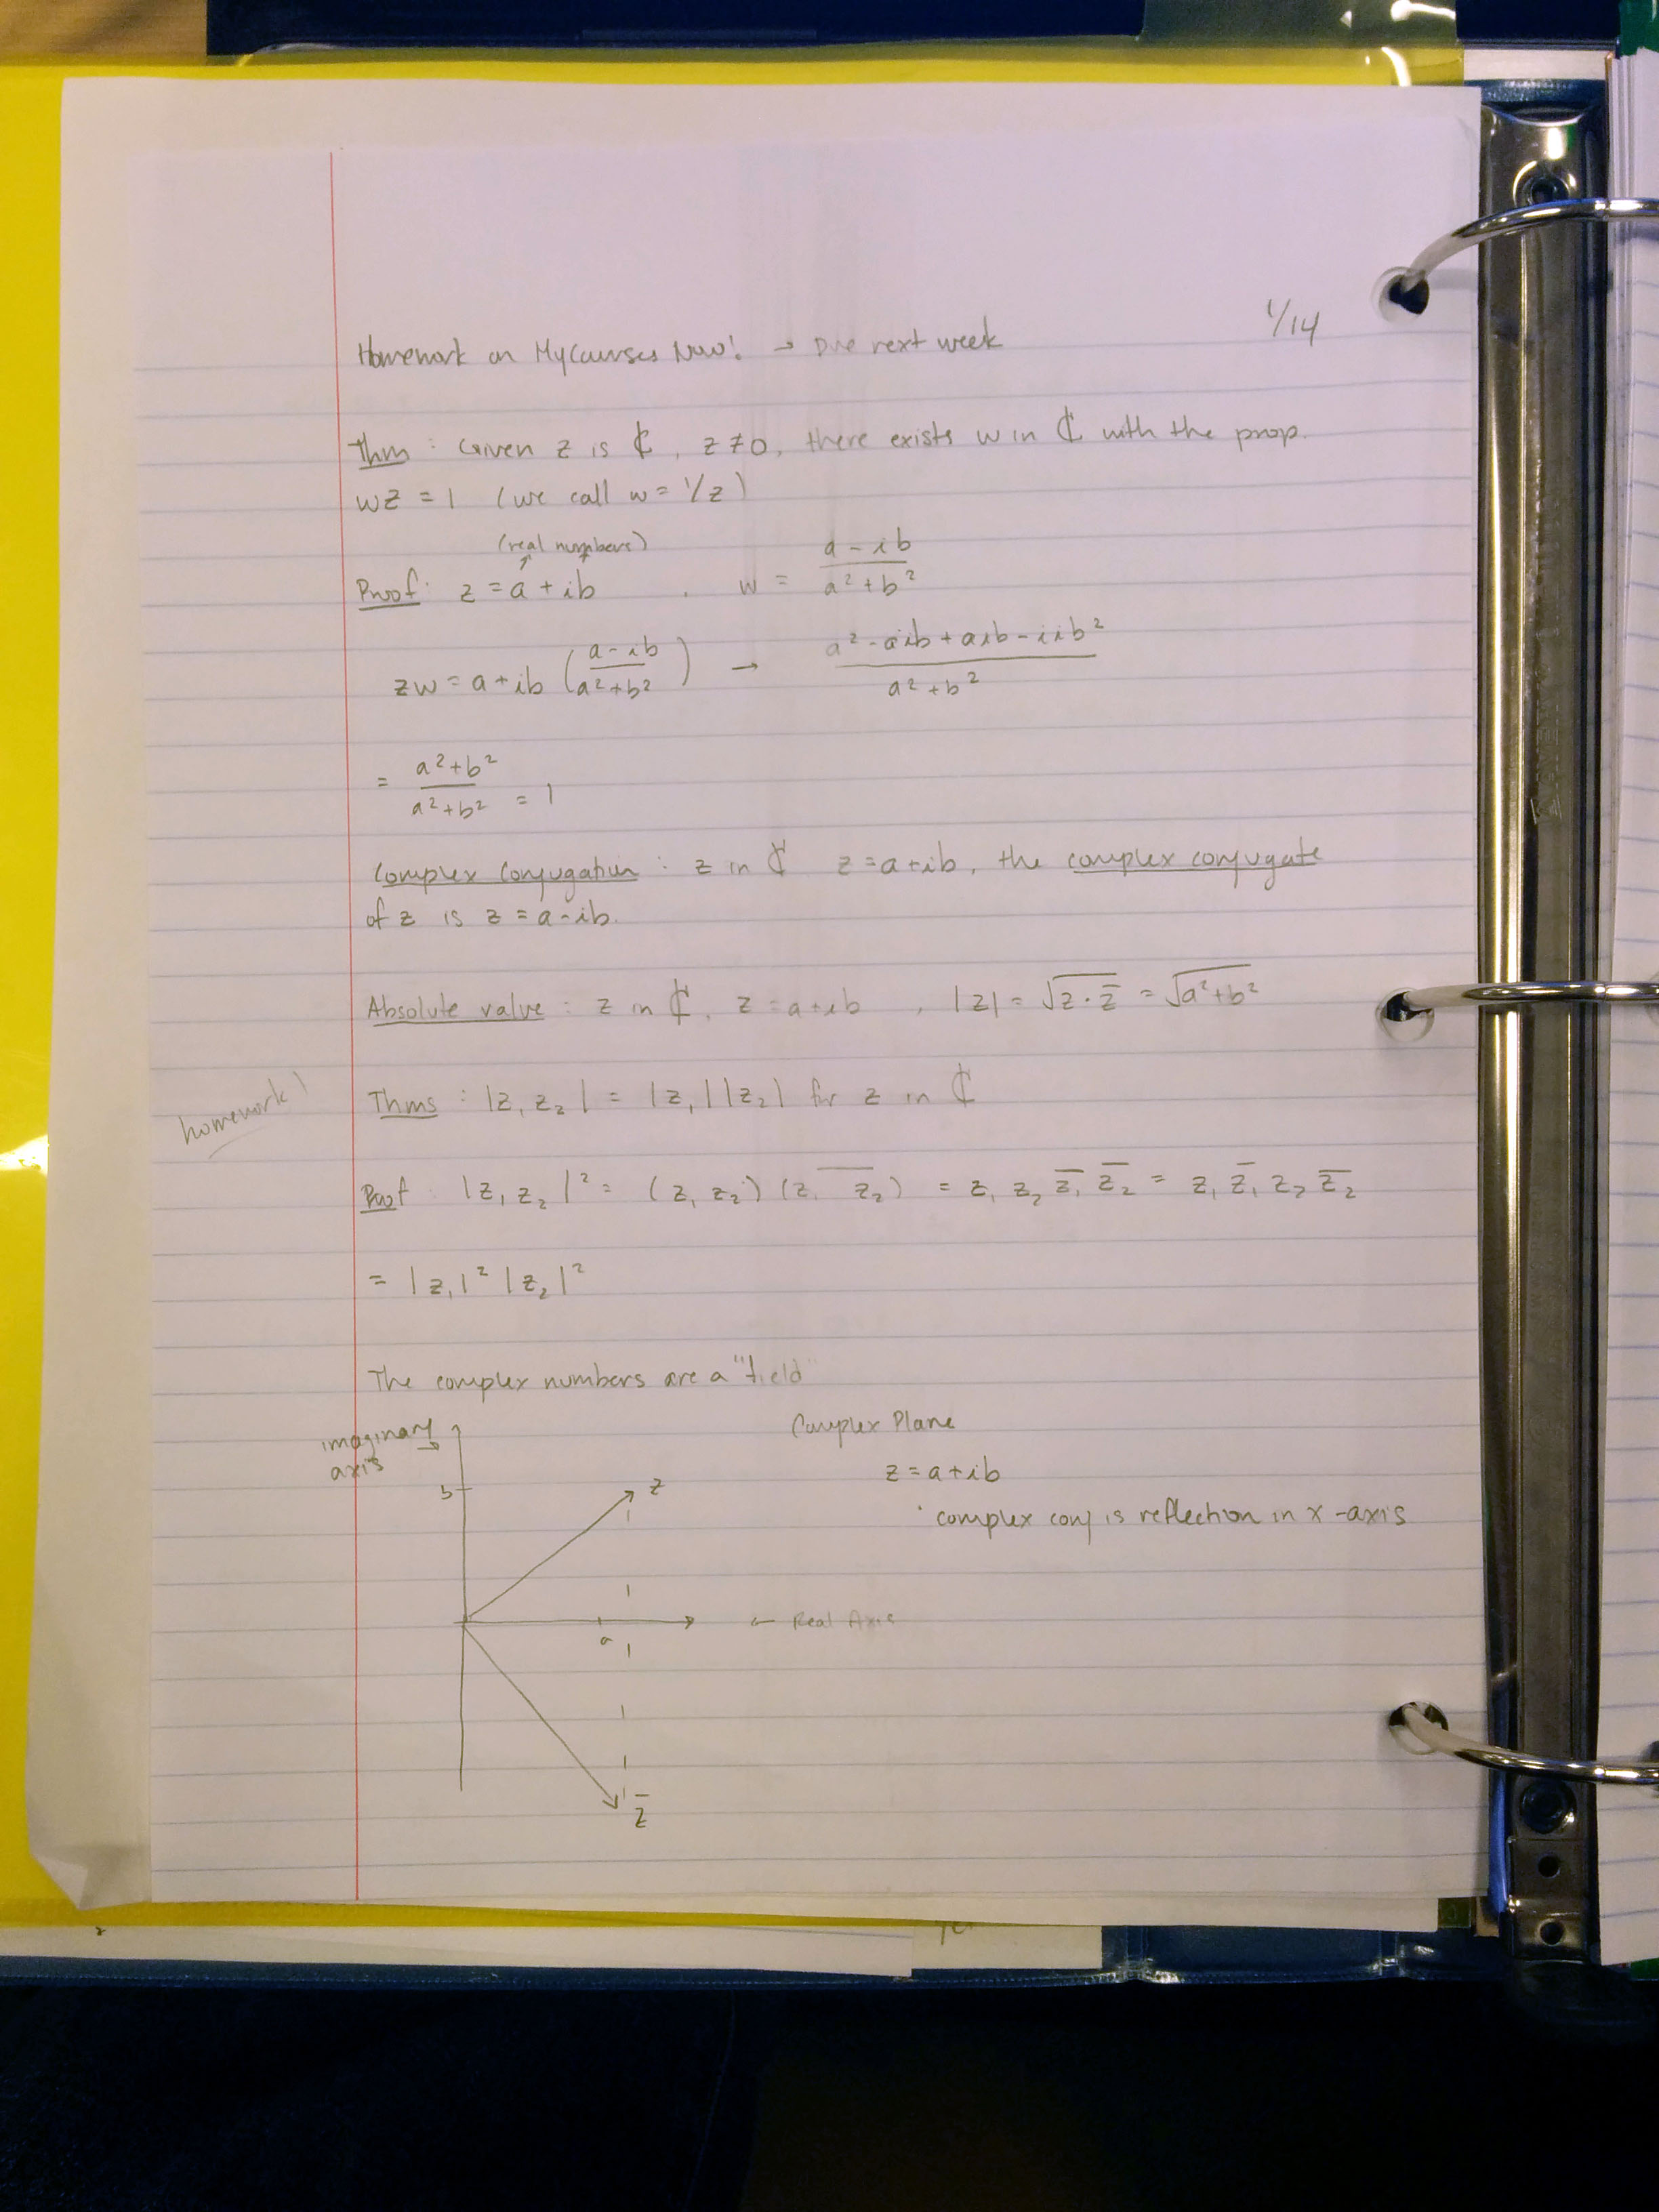 1/14
Homework on MyCourses Now! → Due next week
Thm : Given z is ℂ, z≠0, there exists w in ℂ with the prop.
wz = 1 (we call w = 1/z)
(real numbers)
Proof: z = a + ib , w = (a - ib)/(a² + b²)
zw = a + ib ((a - ib)/(a² + b²)) → (a² - aib + aib - iib²)/(a² + b²)
= (a² + b²)/(a² + b²) = 1
Complex Conjugation : z in ℂ z = a + ib, the complex conjugate
of z is z = a - ib.
Absolute value : z in ℂ, z = a + ib , |z| = √(z · z̅) = √(a² + b²)
homework!
Thms : |z₁ z₂| = |z₁| |z₂| for z in ℂ
Proof : |z₁ z₂|² = (z₁ z₂) (z̅₁ z̅₂) = z₁ z₂ z̅₁ z̅₂ = z₁ z̅₁ z₂ z̅₂
= |z₁|² |z₂|²
The complex numbers are a "field"
imaginary →
axis
Complex Plane
z = a + ib
b
z
· complex conj is reflection in x-axis
a
← Real Axis
z̅